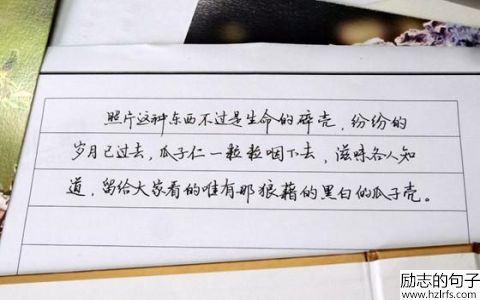 照片这种东西不过是生命的碎壳，纷纷的
岁月已过去，瓜子仁一粒粒咽下去，滋味各人知
道，留给大家看的唯有那狼藉的黑白的瓜子壳。
励志的句子
www.hzlrfs.com